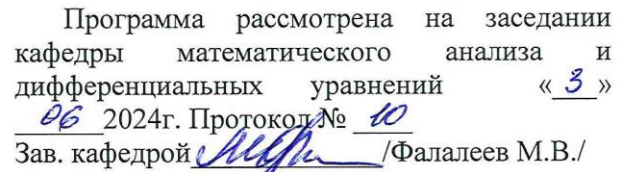 Программа рассмотрена на заседании
кафедры математического анализа и
дифференциальных уравнений «3»
06 2024г. Протокол № 10
Зав. кафедрой /Фалалеев М.В./